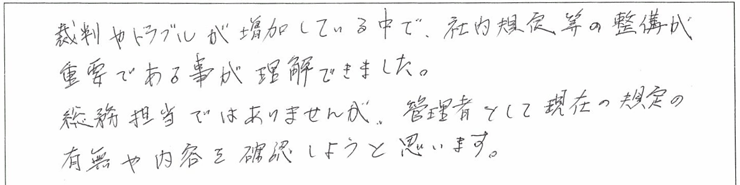 裁判やトラブルが増加している中で、社内規定等の整備が
重要である事が理解できました。
総務担当ではありませんが、管理者として現在の規定の
有無や内容を確認しようと思います。